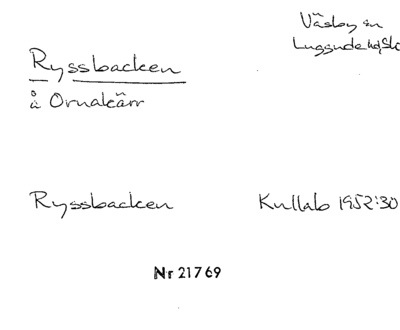 Väsby sn
Luggude hd, Sk
Ryssbacken
å Ornakärr
Ryssbacken
Kullab 1952:30
Nr 21769